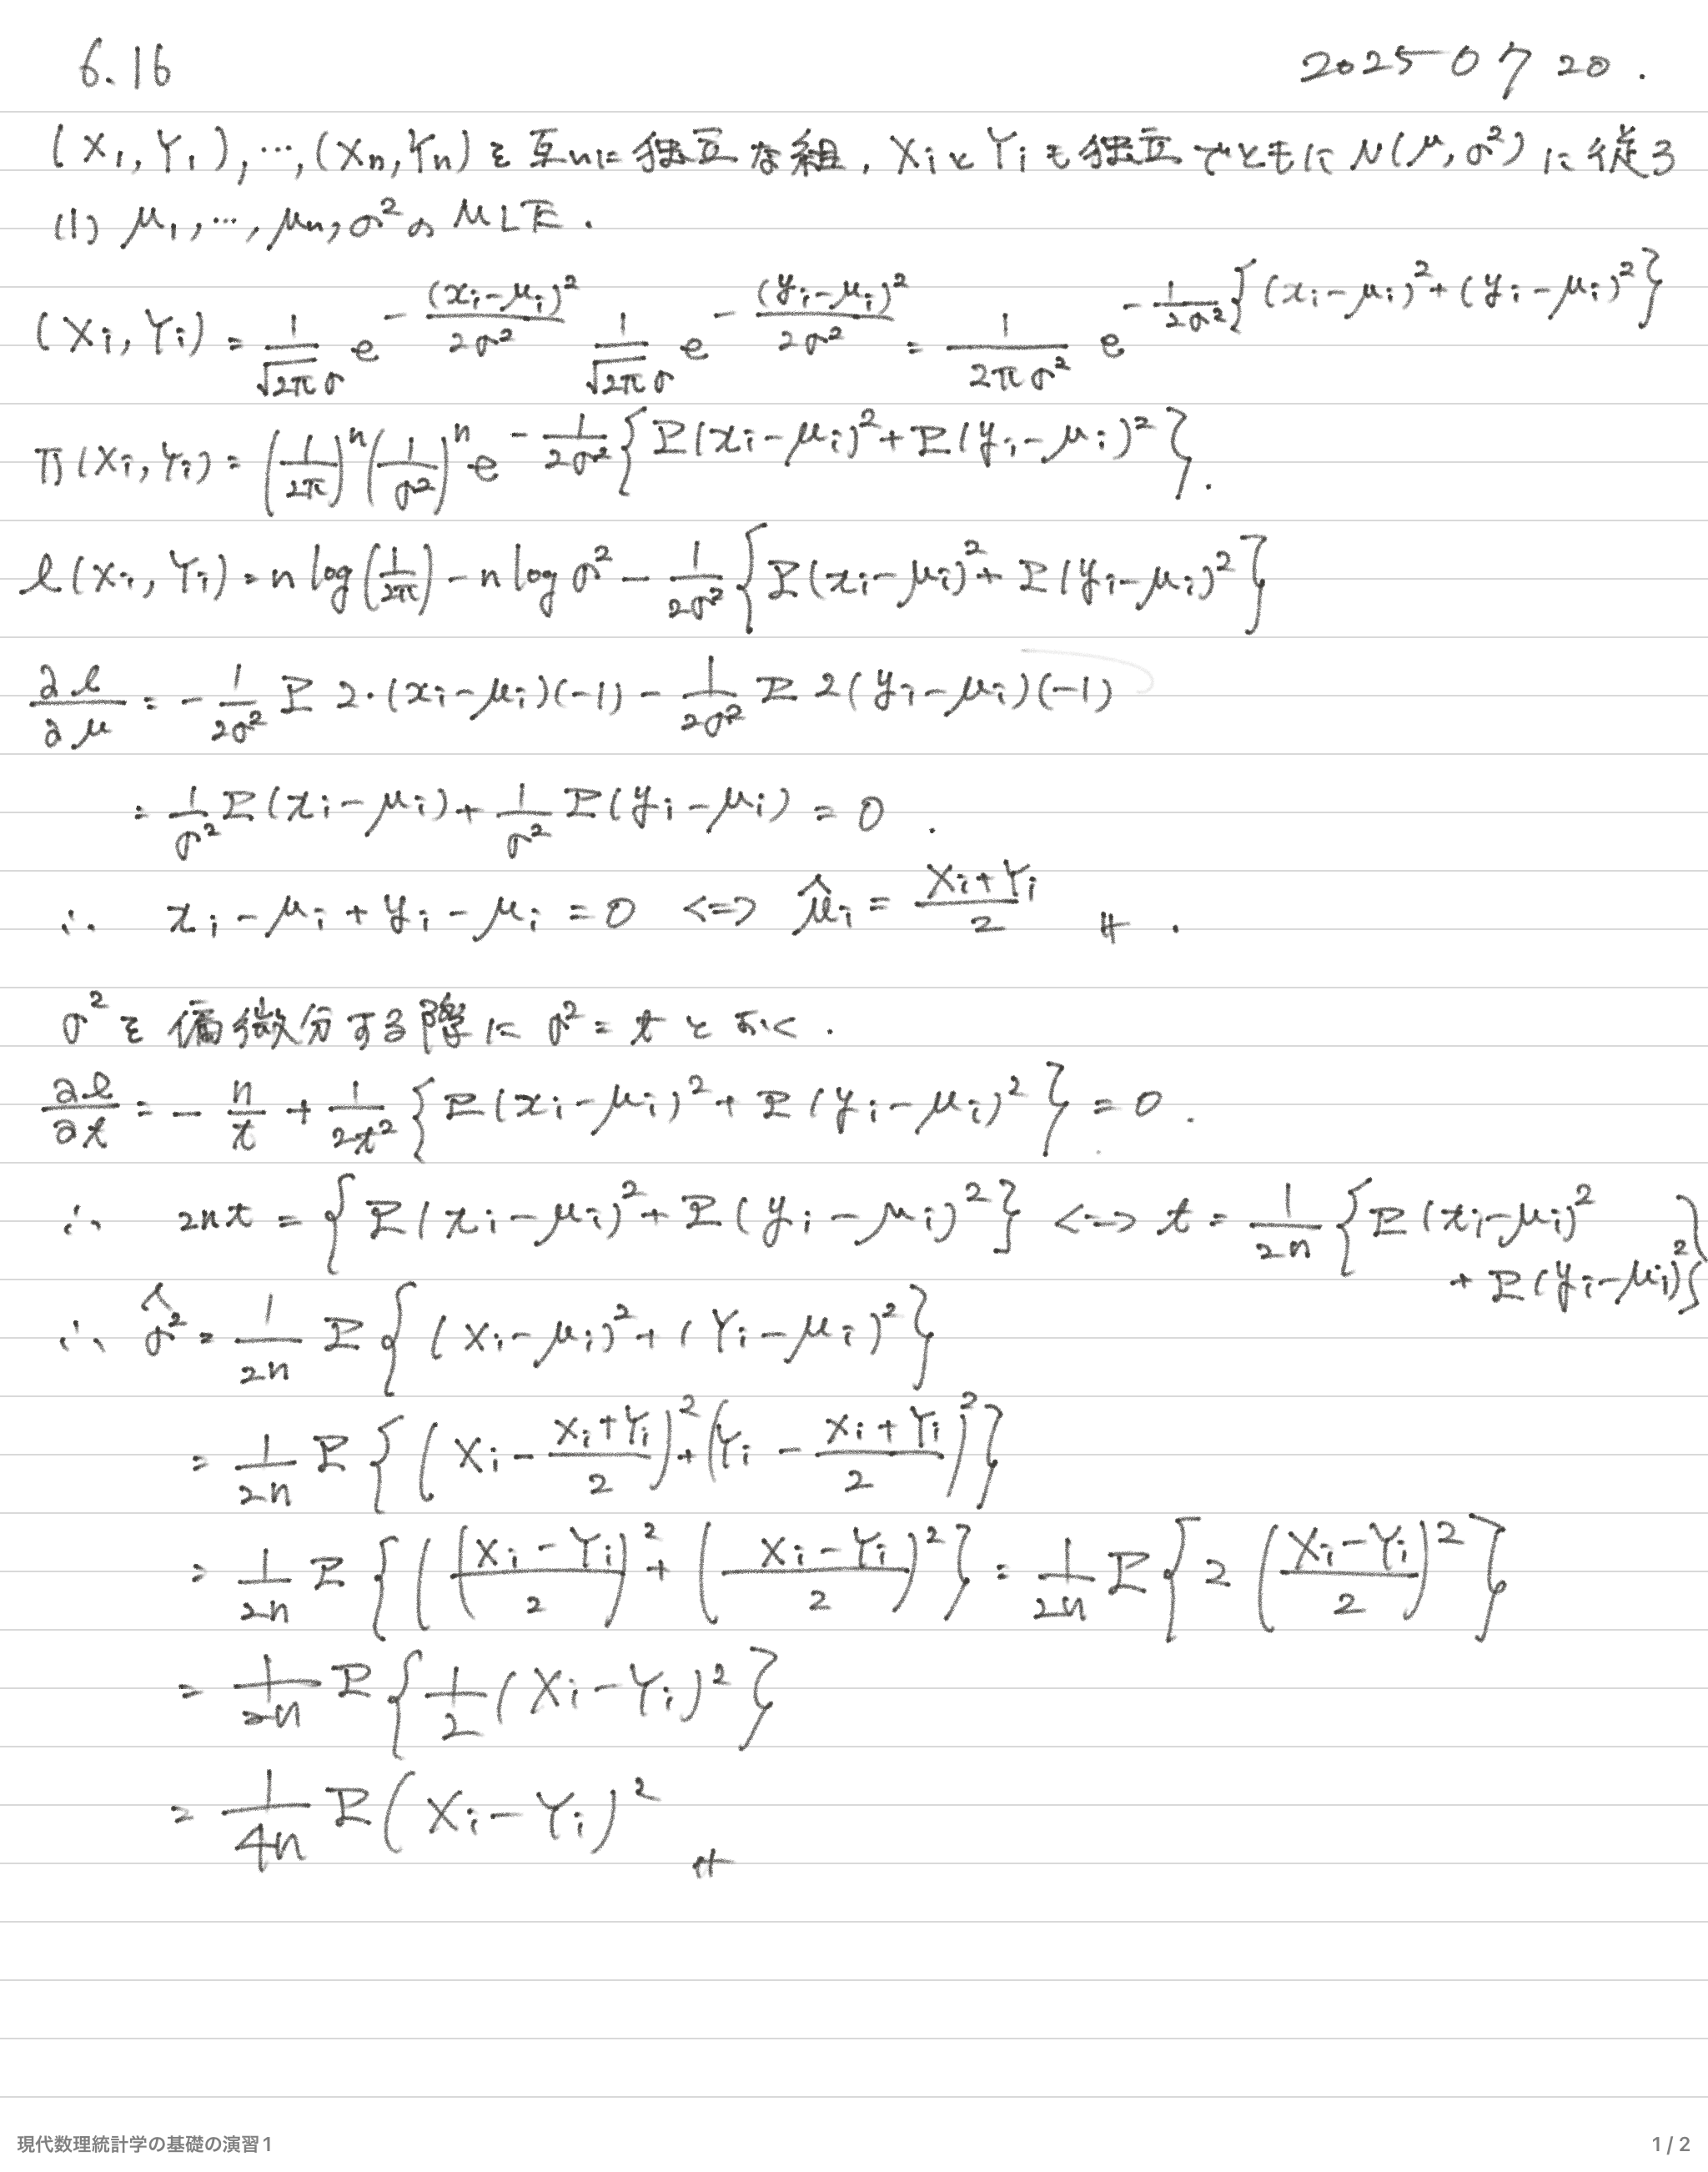 6.16 2025 07 20.
(X₁, Y₁), …, (Xₙ, Yₙ) を互いに独立な組, XᵢとYᵢも独立でともに N(μ, σ²) に従う
(1) μ₁, …, μₙ, σ² の MLE.
(Xᵢ, Yᵢ) = 1/(√2π σ) e^{-(xᵢ-μᵢ)²/2σ²} 1/(√2π σ) e^{-(yᵢ-μᵢ)²/2σ²} = 1/(2πσ²) e^{-1/2σ² {(xᵢ-μᵢ)² + (yᵢ-μᵢ)²}}
Π(Xᵢ, Yᵢ) = (1/2π)ⁿ (1/σ²)ⁿ e^{-1/2σ² {Σ(xᵢ-μᵢ)² + Σ(yᵢ-μᵢ)²}}.
ℓ(Xᵢ, Yᵢ) = n log(1/2π) - n log σ² - 1/2σ² {Σ(xᵢ-μᵢ)² + Σ(yᵢ-μᵢ)²}
∂ℓ/∂μ = - 1/2σ² Σ 2·(xᵢ-μᵢ)(-1) - 1/2σ² Σ 2(yᵢ-μᵢ)(-1)
= 1/σ² Σ(xᵢ-μᵢ) + 1/σ² Σ(yᵢ-μᵢ) = 0.
∴ xᵢ - μᵢ + yᵢ - μᵢ = 0 <=> μ̂ᵢ = (Xᵢ+Yᵢ)/2 #.
σ² を偏微分する際に σ² = t とおく.
∂ℓ/∂t = - n/t + 1/2t² {Σ(xᵢ-μᵢ)² + Σ(yᵢ-μᵢ)²} = 0.
∴ 2nt = {Σ(xᵢ-μᵢ)² + Σ(yᵢ-μᵢ)²} <=> t = 1/2n {Σ(xᵢ-μᵢ)²
+ Σ(yᵢ-μᵢ)²}
∴ σ̂² = 1/2n Σ {(Xᵢ-μᵢ)² + (Yᵢ-μᵢ)²}
= 1/2n Σ {(Xᵢ - (Xᵢ+Yᵢ)/2)² + (Yᵢ - (Xᵢ+Yᵢ)/2)²}
= 1/2n Σ {(((Xᵢ-Yᵢ)/2)² + ((Xᵢ-Yᵢ)/2)²} = 1/2n Σ {2 ((Xᵢ-Yᵢ)/2)²}
= 1/2n Σ {1/2 (Xᵢ-Yᵢ)²}
= 1/4n Σ(Xᵢ-Yᵢ)² #
現代数理統計学の基礎の演習1 1 / 2